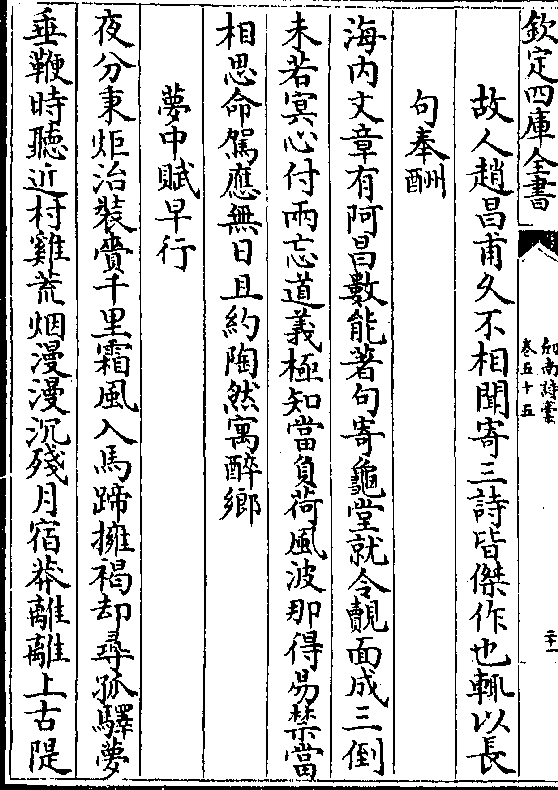 欽定四庫全書
劍南詩藁
卷五十五
二十一
故人趙昌甫久不相聞寄三詩皆傑作也輒以長
句奉酬
海内文章有阿昌數能著句寄龜堂就令覿面成三倒
未若冥心付兩忘道義極知當負荷風波那得易禁當
相思命駕應無日且約陶然寓醉鄉
夢中賦早行
夜分秉炬治裝賫千里霜風入馬蹄擁褐却尋孤驛夢
垂鞭時聽近村雞荒烟漫漫沉殘月宿莽離離上古隄